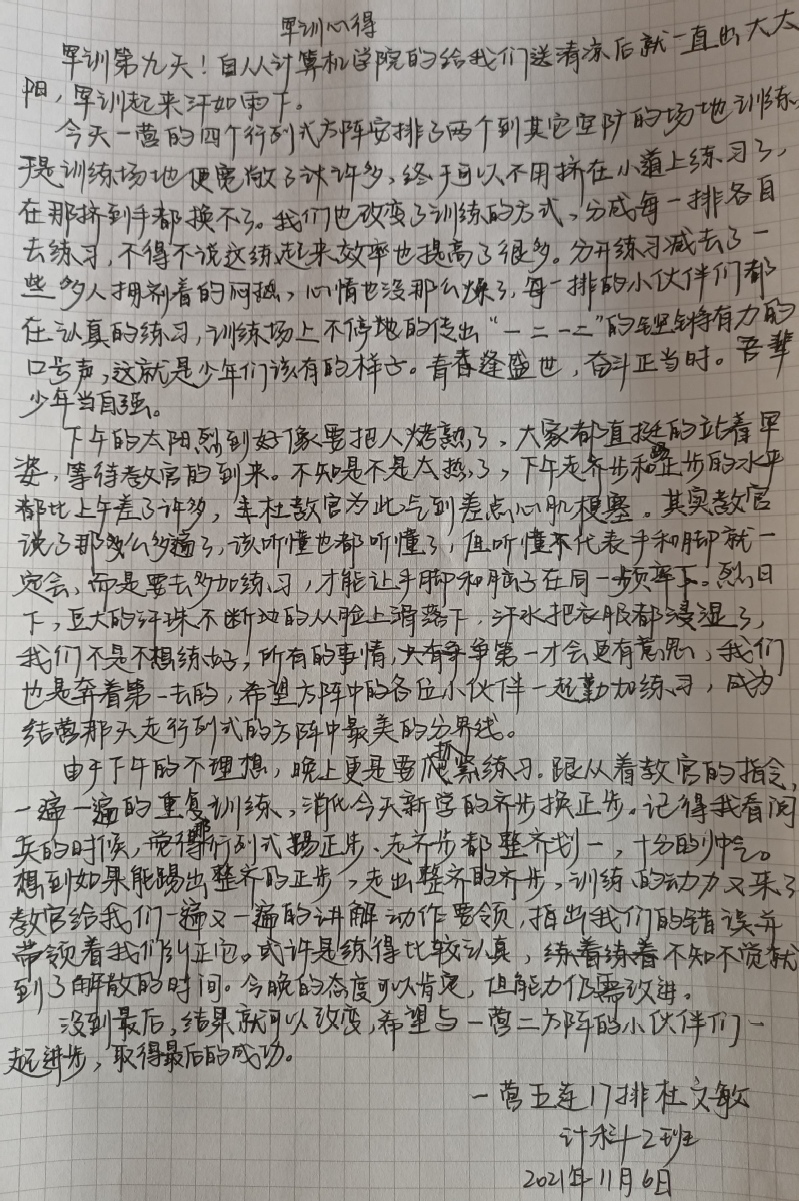 军训心得
军训第九天！自从计算机学院的给我们送清凉后就一直出大太
阳，军训起来汗如雨下。
今天一营的四个行列式方阵安排了两个到其它空旷的场地训练，
于是训练场地便宽敞了许多，终于可以不用挤在小道上练习了，
在那挤到手都换不了。我们也改变了训练的方式，分成每一排各自
去练习，不得不说这练起来效率也提高了很多。分开练习减去了一
些多人拥挤着的闷热，心情也没那么燥了，每一排的小伙伴们都
在认真的练习，训练场上不停地的传出“一二一二”的铿锵有力的
口号声，这就是少年们该有的样子。青春逢盛世，奋斗正当时。吾辈
少年当自强。
下午的太阳烈到好像要把人烤熟了，大家都直挺的站着军
姿，等待教官的到来。不知是不是太热了，下午走齐步和正步的水平
都比上午差了许多，主杜教官为此气到差点心肌梗塞。其实教官
说了那么多遍了，该听懂也都听懂了，但听懂不代表手和脚就一
定会，而是要去多加练习，才能让手脚和脑子在同一频率下。烈日
下，豆大的汗珠不断地的从脸上滑落下，汗水把衣服都浸湿了，
我们不是不想练好，所有的事情，只有争第一才会更有意思，我们
也是奔着第一去的，希望方阵中的各位小伙伴一起勤加练习，成为
结营那天走行列式的方阵中最美的分界线。
由于下午的不理想，晚上更是要抓紧练习。跟从着教官的指令，
一遍一遍的重复训练，消化今天新学的齐步换正步。记得我看阅
兵的时候，觉得那行列式踢正步、走齐步都整齐划一，十分的帅气。
想到如果能踢出整齐的正步，走出整齐的齐步，训练的动力又来了
教官给我们一遍又一遍的讲解动作要领，指出我们的错误并
带领着我们纠正它。或许是练得比较认真，练着练着不知不觉就
到了解散的时间。今晚的态度可以肯定，但能力仍需改进。
没到最后，结果就可以改变，希望与一营二方阵的小伙伴们一
起进步，取得最后的成功。
一营五连17排杜文敏
计科12班
2021年11月6日